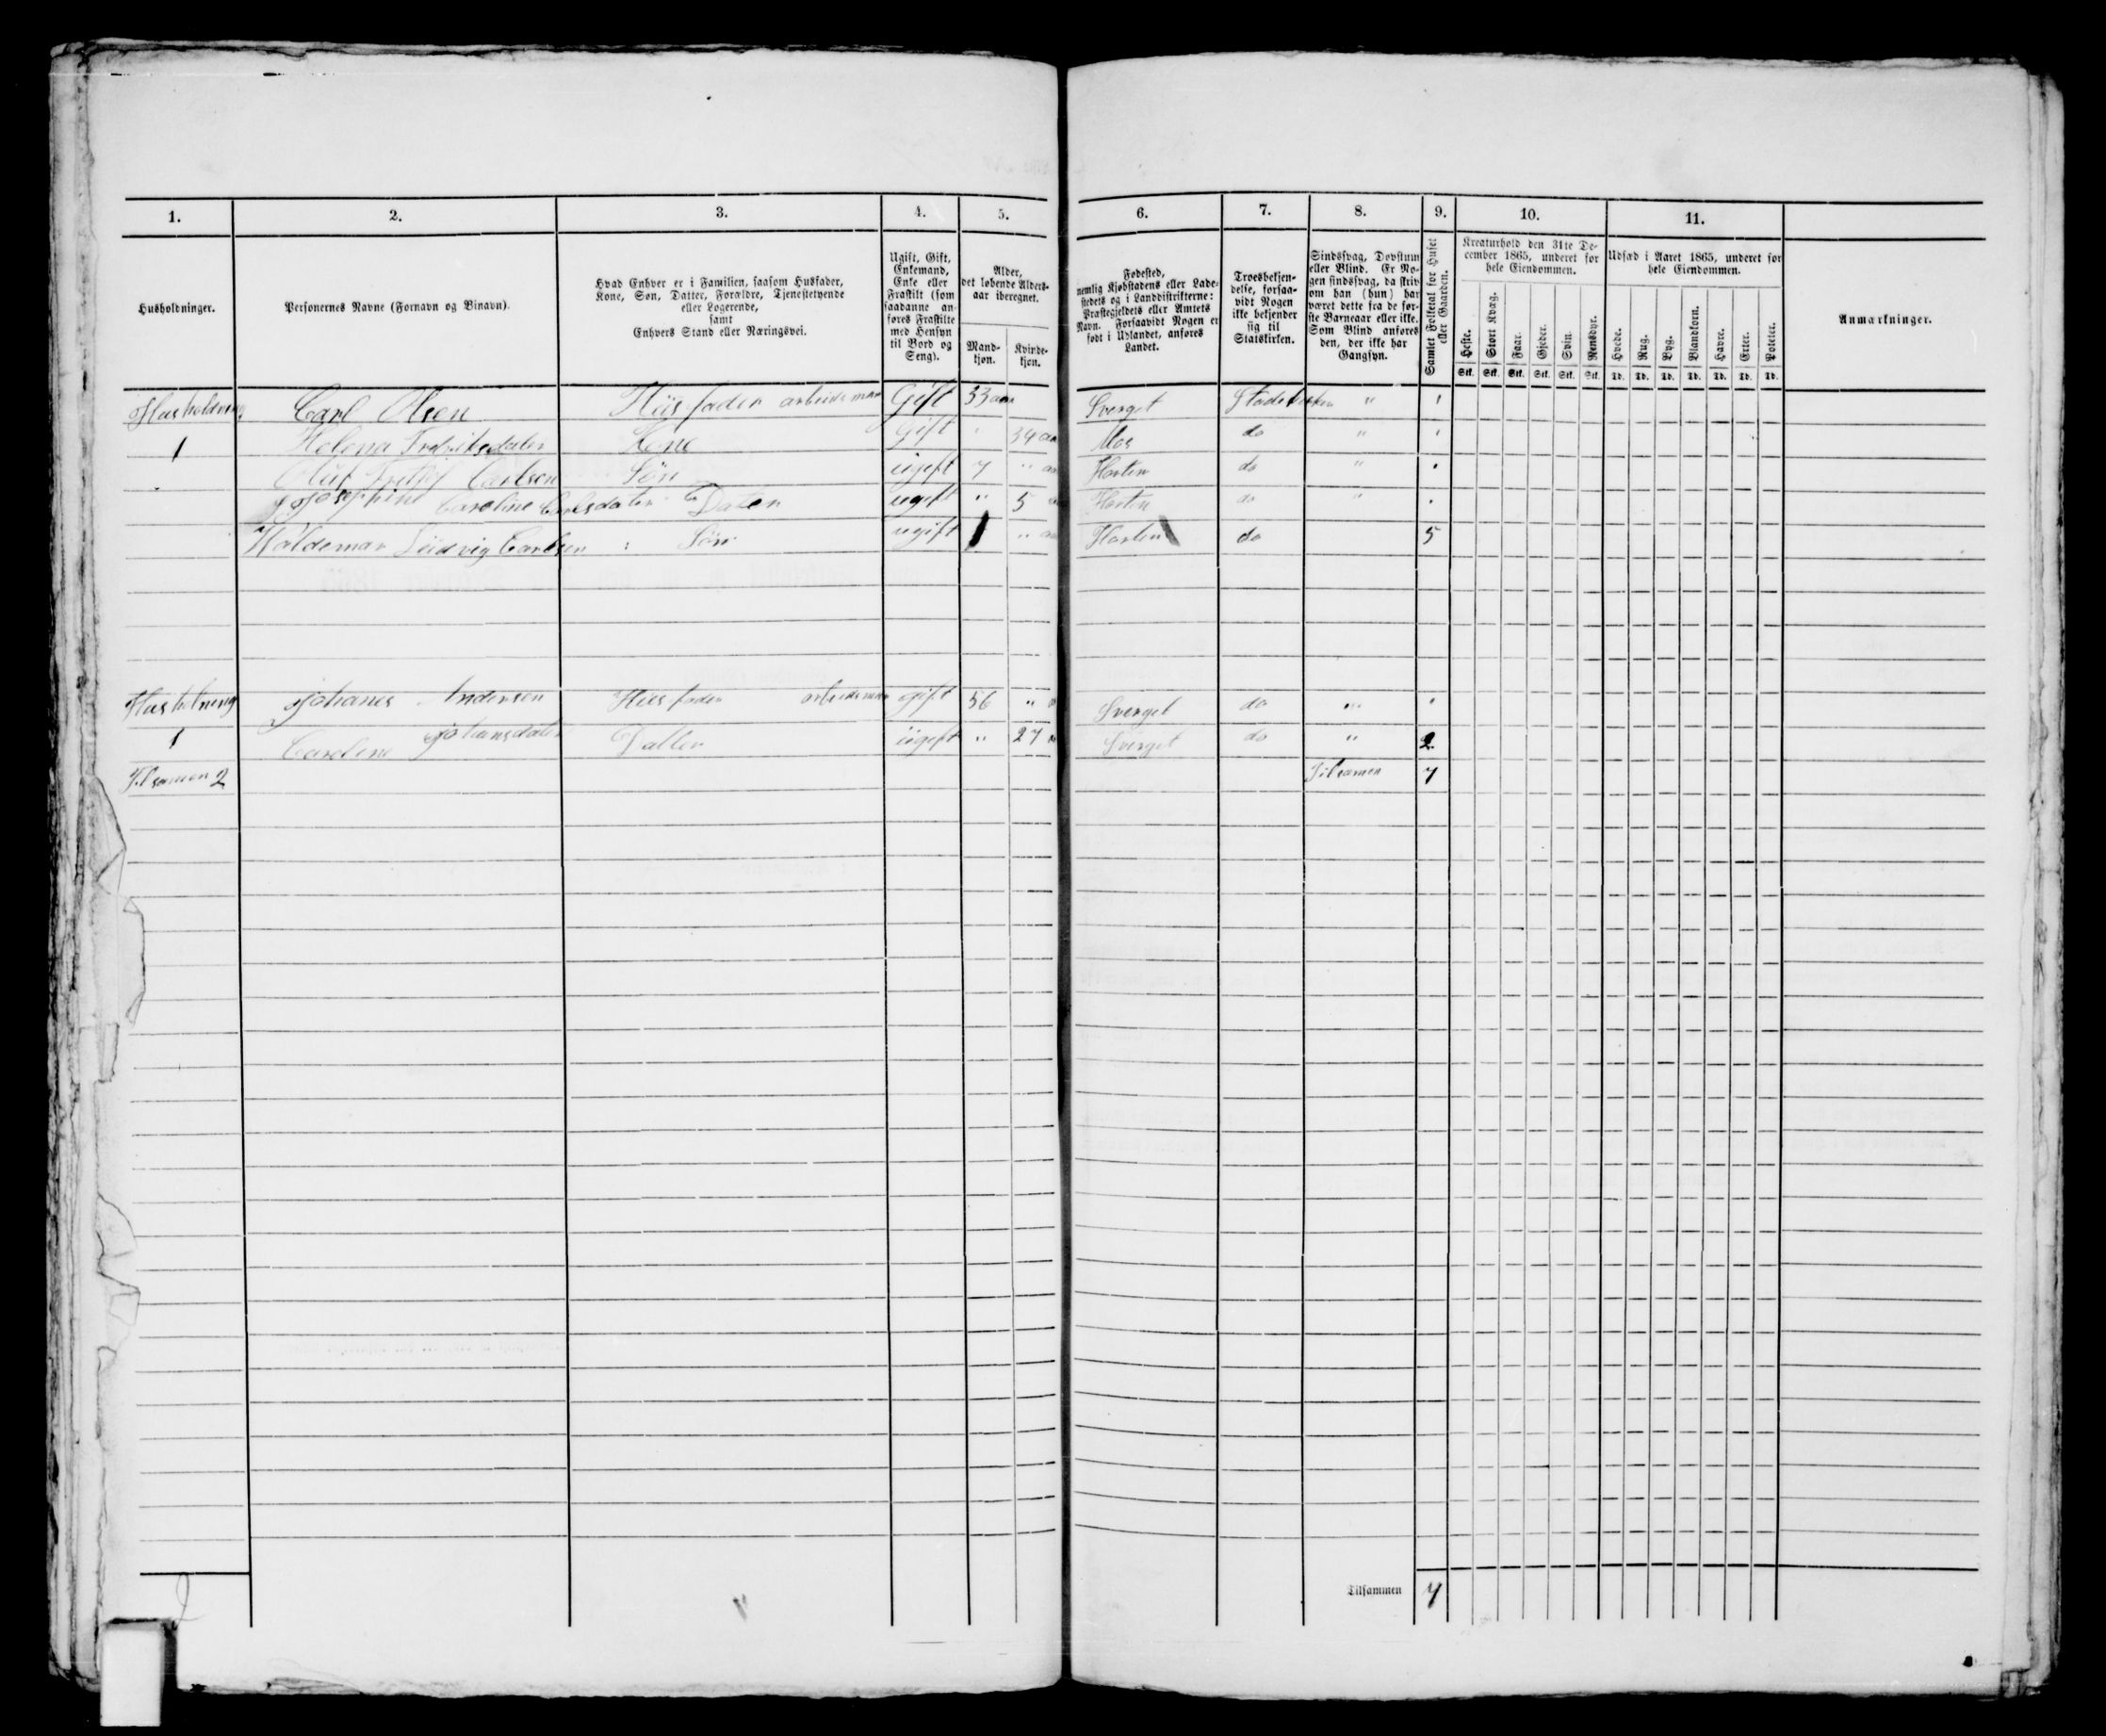 1. 2. 3. 4. 5. 6. 7. 8. 9. 10. 11.
Husholdninger.
Personernes Navne (Fornavn og Binavn).
Hvad Enhver er i Familien, saasom Husfader,
Kone, Søn, Datter, Forældre, Tjenestetyende
eller Logerende,
samt
Enhvers Stand eller Næringsvei.
Ugift, Gift,
Enkemand,
Enke eller
Fraskilt (som
saadanne an-
føres Fraskilte
med Hensyn
til Bord og
Seng).
Alder,
det løbende Alders-
aar iberegnet.
Mand-
kjøn.
Kvinde-
kjøn.
Fødested,
nemlig Kjøbstadens eller Lade-
stedets og i Landdistrikterne:
Præstegjeldets eller Amtets
Navn. Forsaavidt Nogen er
født i Udlandet, anføres
Landet.
Troesbekjen-
delse, forsaa-
vidt Nogen
ikke bekjender
sig til
Statskirken.
Sindssvag, Døvstum
eller Blind. Er No-
gen sindssvag, da skriv
om han (hun) har
været dette fra de før-
ste Barneaar eller ikke.
Som Blind anføres
den, der ikke har
Gangsyn.
Samlet Folketal for Huset
eller Gaarden.
Kreaturhold den 31te De-
cember 1865, underet for
hele Eiendommen.
Heste. Stort Kvæg. Faar. Gjeder. Svin. Rensdyr.
Stk. Stk. Stk. Stk. Stk. Stk.
Udsæd i Aaret 1865, underet for
hele Eiendommen.
Hvede. Rug. Byg. Blandkorn. Havre. Erter. Poteter.
Td. Td. Td. Td. Td. Td. Td.
Anmærkninger.
Husholdning Carl Olsen Hüsfader arbeidsman Gift 33 aar Sverget Stadskirken "
1 Helena Fredriksdater Kone Gift 34 aar Mos do "
Carlsen Sön ügift 7 " Horten do "
Josephine Caroline Carlsdater Dater ugift " 5 Horten do "
Waldemar Ludvig Carlsen Sön ugift 1 " Horten do 5
Husholning Johanes Andersen Hüsfader arbeidsman gift 56 " Sverget do "
1 Caroline Johansdater Datter ügift " 27 Sverget do " 2
Tilsamen 2 Tilsamen 7
Tilsammen 7
2